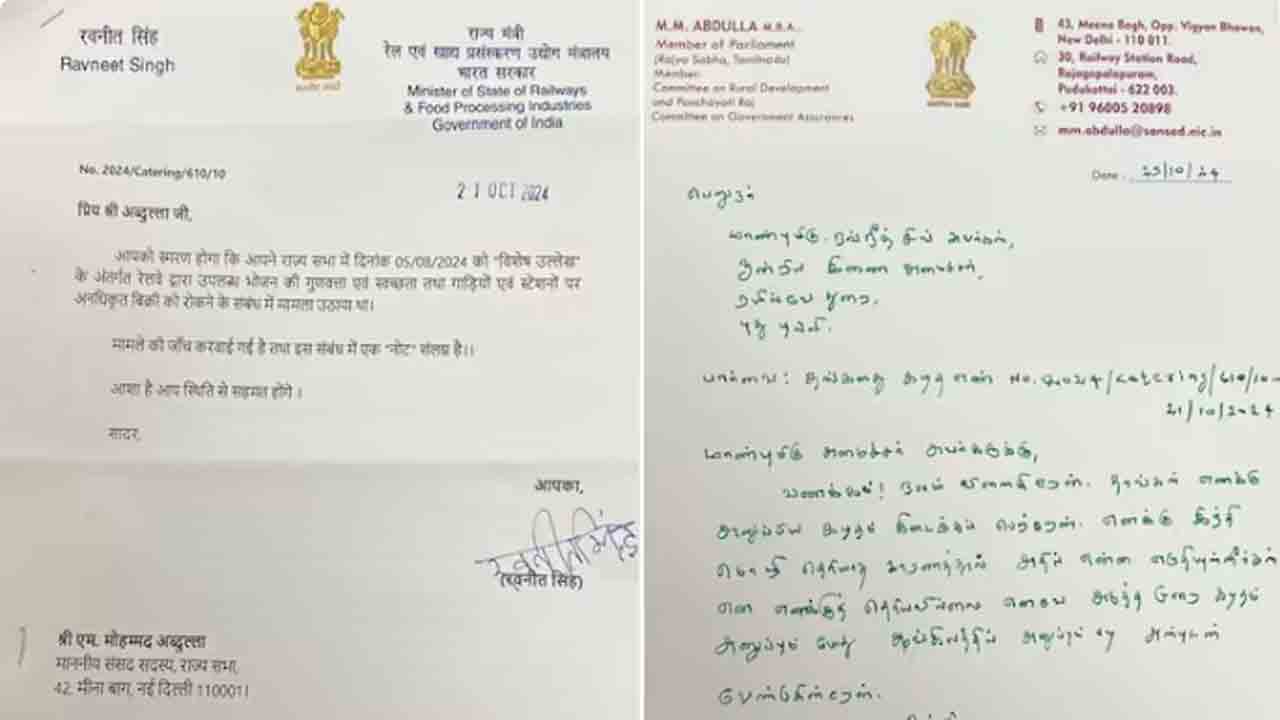 रवनीत सिंह
Ravneet Singh
राज्य मंत्री
रेल एवं खाद्य प्रसंस्करण उद्योग मंत्रालय
भारत सरकार
Minister of State of Railways
& Food Processing Industries
Government of India
No. 2024/Catering/610/10
21 OCT 2024
प्रिय श्री अब्दुल्ला जी,
आपको स्मरण होगा कि आपने राज्य सभा में दिनांक 05/08/2024 को "विशेष उल्लेख"
के अंतर्गत रेलवे द्वारा उपलब्ध भोजन की गुणवत्ता एवं स्वच्छता तथा गाड़ियों एवं स्टेशनों पर
अनधिकृत बिक्री को रोकने के संबंध में मामला उठाया था।
मामले की जाँच करवाई गई है तथा इस संबंध में एक "नोट" संलग्न है।।
आशा है आप स्थिति से सहमत होंगे ।
सादर,
आपका,
रवनीत सिंह
(रवनीत सिंह)
श्री एम. मोहम्मद अब्दुल्ला
माननीय संसद सदस्य, राज्य सभा,
42, मीना बाग, नई दिल्ली 110001।
M.M. ABDULLA M.B.A.,
Member of Parliament
(Rajya Sabha, Tamilnadu)
Member:
Committee on Rural Development
and Panchayati Raj
Committee on Government Assurances
43, Meena Bagh, Opp. Vigyan Bhawan,
New Delhi - 110 011.
30, Railway Station Road,
Rajagopalapuram,
Pudukottai - 622 003.
+91 96005 20898
mm.abdulla@sansad.nic.in
Date : 25/10/24
பெறுநர்
மாண்புமிகு. ரவ்நீத் சிங் அவர்கள்,
இணை அமைச்சர்,
ரயில்வே துறை,
புது டில்லி.
பார்வை : தங்களது கடித எண் No. 2024/Catering/610/10
21/10/2024
மாண்புமிகு அமைச்சர் அவர்களுக்கு,
வணக்கம்! நலம் விளைகிறேன். தாங்கள் எனக்கு
அனுப்பிய கடிதம் கிடைக்கப் பெற்றேன். எனக்கு இந்தி
மொழி தெரியாத காரணத்தால் அதில் என்ன எழுதியுள்ளீர்கள்
என எனக்குத் தெரியவில்லை எனவே அடுத்த முறை கடிதம்
அனுப்பும் போது ஆங்கிலத்தில் அன்புடன்